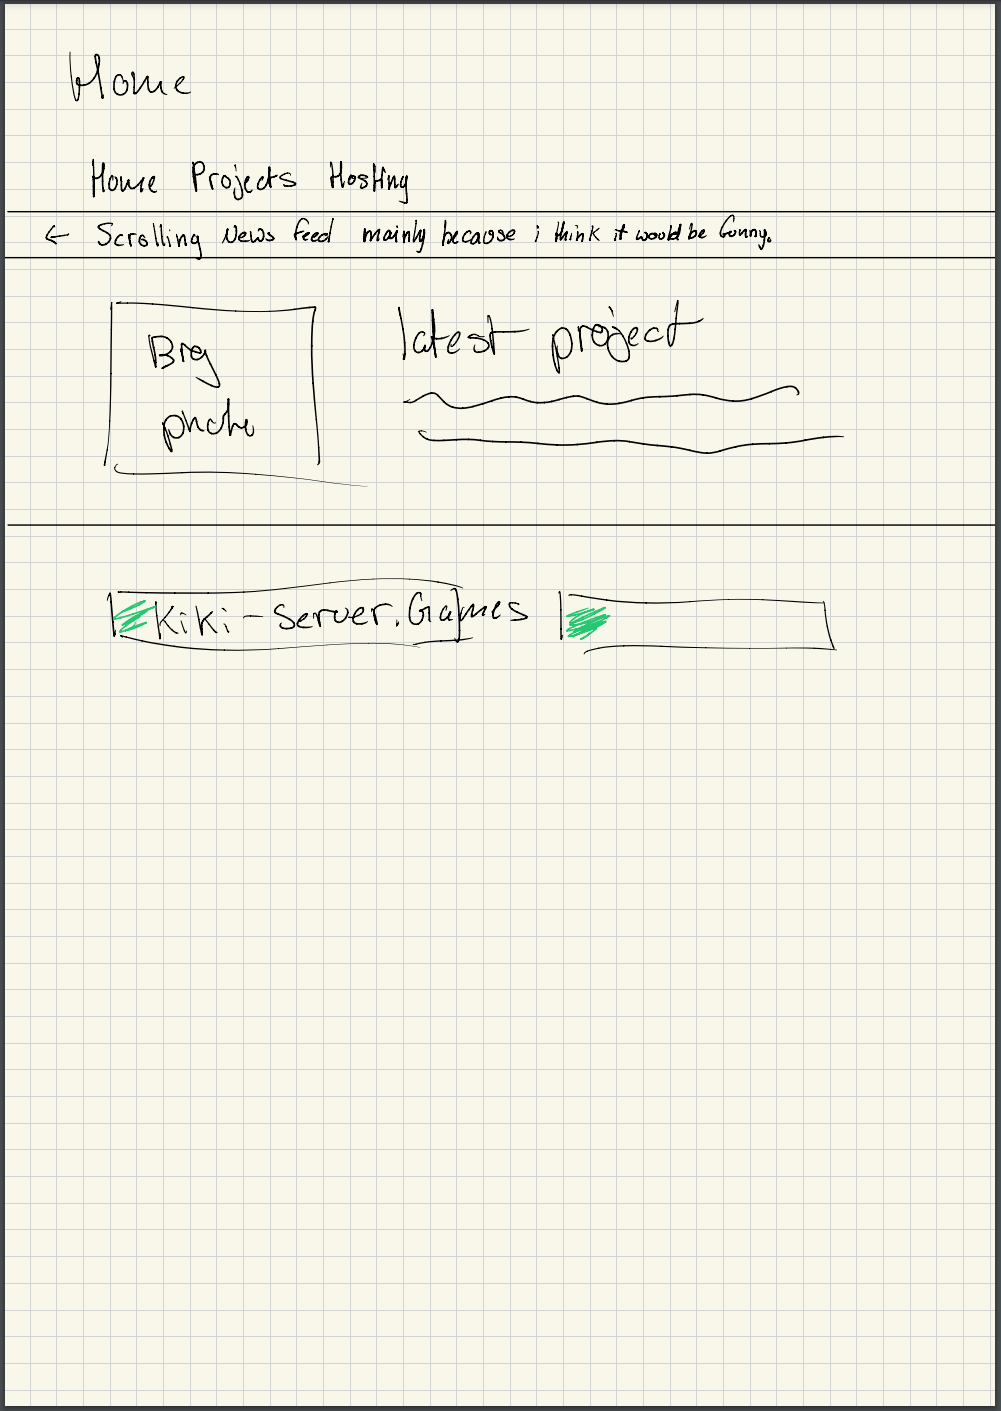 Home
Home Projects Hosting
← Scrolling News feed mainly because i think it would be funny.
Big
photo
latest project
Kiki-Server.Games